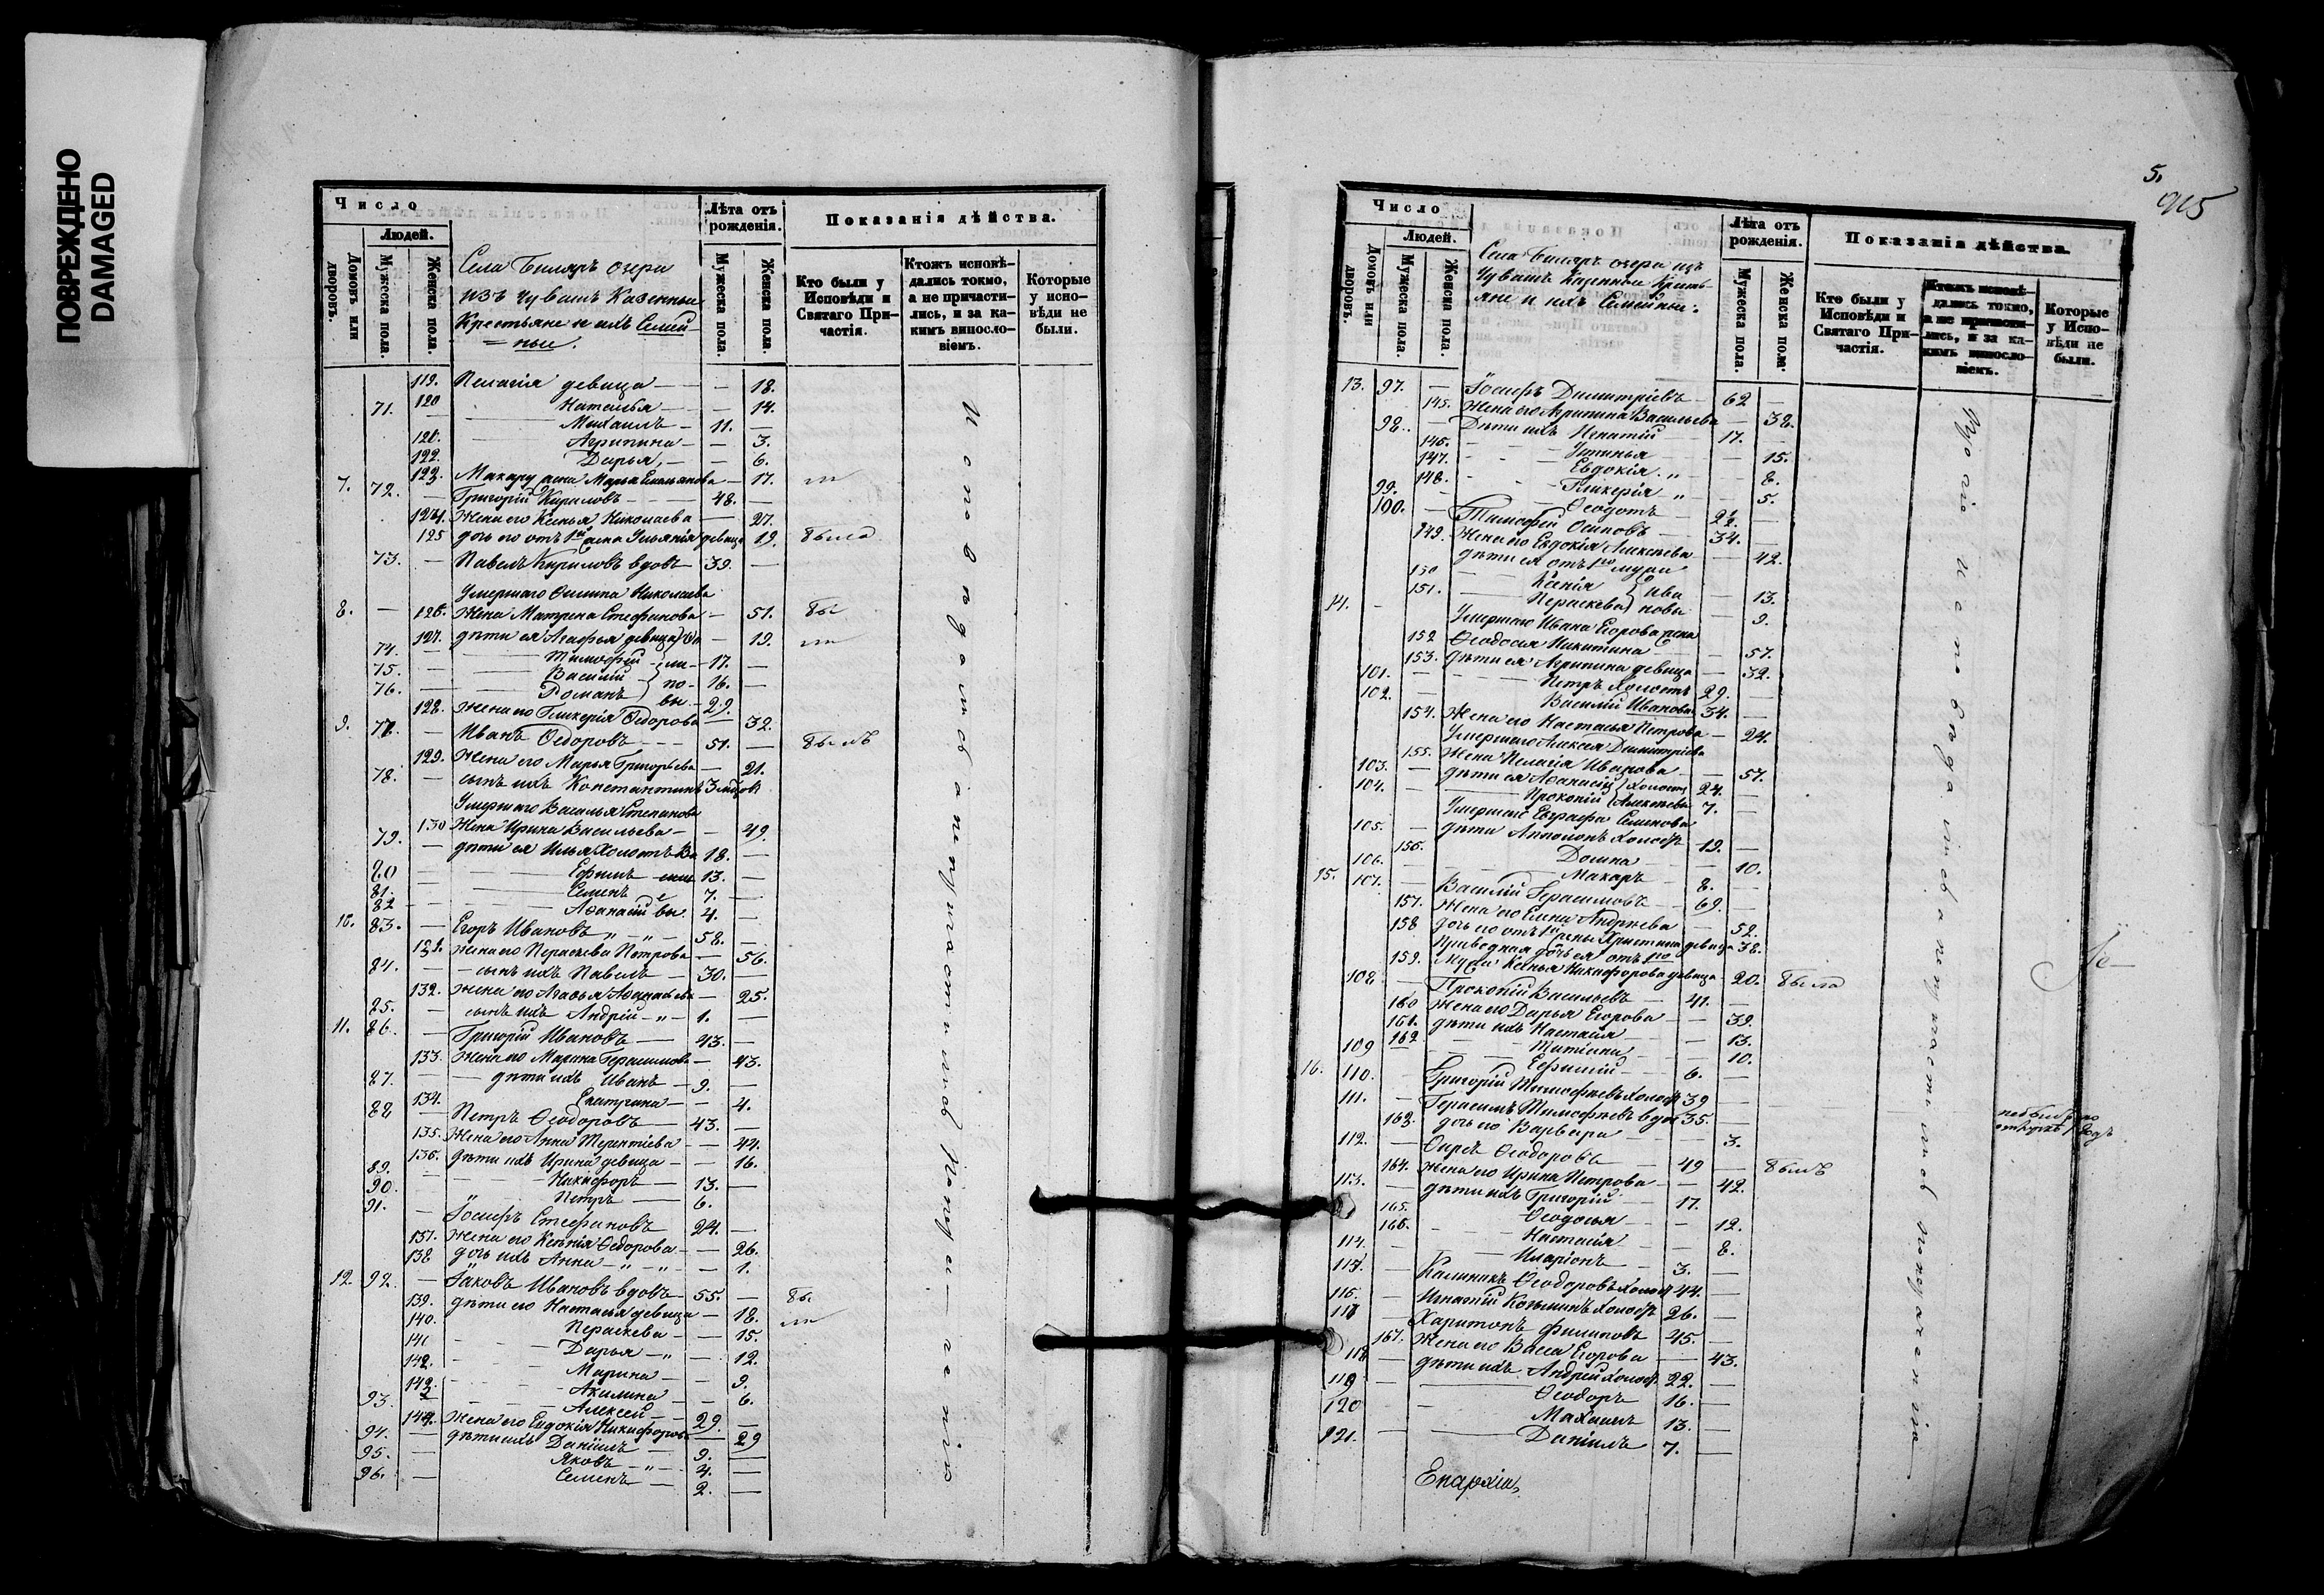 ПОВРЕЖДЕНО
DAMAGED
Число
Людей.
Домовъ или дворовъ.
Мужеска пола.
Женска пола.
Села Биляръ озера
изъ чувашъ Казенные
Крестьяне и ихъ Семей
=ные.
Лѣта отъ рожденія.
Мужеска пола.
Женска пола.
Показанія дѣйства.
Кто были у Исповѣди и Святаго Причастія.
Ктожъ исповѣдались токмо, а не причастились, и за какимъ винословіемъ.
Которые у исповѣди не были.
119. Пелагія девица — — 18.
120 Наталья — — 14.
71. Михаилъ — 11. —
121. Агрипина — — 3.
122. Дарья, — — 6.
123. Макару жена Марья Емельянова — 17.
7. 72. — Григорій Кириловъ — 48. —
124. Жена его Ксенья Николаева — 27.
125 дочь его отъ 1й жены Ульянія девица 19. была
73. — Павелъ Кириловъ вдовъ — 39. —
Умершаго Филипа Николаева
8. — 126. Жена Матрена Стефанова — 51. бы
127. дети ея Агафья девица Фи — 19. ли
74. — Тимофей ли — 17. —
75. — Василій по — 16. —
76. — Романъ вы — 29.
128. Жена его Гликерія Федорова — 32.
9. 77. — Иванъ Федоровъ — 51. — былъ
129. Жена его Марья Григорьева — 21.
78. — сынъ ихъ Константинъ 3 мцов
Умершаго Василья Степанова
130 Жена Ирина Васильева — — 49.
79. — дети ея Илья Холостъ Ва 18. —
80 — Ефимъ 13. —
81. — Семенъ 7. —
82 — Афанасій вы. 4. —
10. 83. — Егоръ Ивановъ „ — „ — 58. —
131. Жена его Параскева Петрова — 56.
84. — — сынъ ихъ Павелъ — 30. —
132. Жена его Агафья Афанасьева — 25.
85. — сынъ ихъ Андрей — „ — 1. —
11. 86. — Григорій Ивановъ — 43. —
133. Жена его Марина Герасимова — 43.
87. — дети ихъ Иванъ — 9. —
134. Екатерина — — 4.
88 — Петръ Феодоровъ — 43. —
135. Жена его Анна Терентіева — — 44.
136. дети ихъ Ирина девица — — 16.
89. — Никифоръ — 13. —
90. — Петръ — 6. —
91. — Іосифъ Стефановъ 24. —
137. Жена его Ксенія Федорова — — 26.
138 дочь ихъ Анна — „ — „ — 1.
12. 92. — Іаковъ Ивановъ вдовъ — 55. — бы
139. дети его Настасья девица — 18. ли
140. Параскева — — 15.
141 Дарья — „ — 12.
142. Марина — — 9.
143. Акилина — — 6.
93. — Алексей — 29. —
144. Жена его Евдокія Никифорова — 29
94. — дети ихъ Даніилъ — 9. —
95. — Яковъ — „ — 4. —
96. — Семенъ — 2. —
Исповѣдались а непричастились
5.
915
Число
Людей.
Домовъ или дворовъ.
Мужеска пола.
Женска пола.
Села Биляръ озера изъ
Чувашъ Казенные Кресть-
яне и ихъ Семейные.
Лѣта отъ рожденія.
Мужеска пола.
Женска пола.
Показанія дѣйства.
Кто были у Исповѣди и Святаго Причастія.
Ктожъ исповѣдались токмо, а не причастились, и за какимъ винословіемъ.
Которые у Исповѣди не были.
13. 97. — Іосифъ Димитріевъ 62 —
145. Жена его Агрипина Васильева — 38.
98. — Дети ихъ Игнатій 17. —
146. Устинья — 15.
147. Евдокія. „ — 8.
148. Гликерія „ — 5.
99. — Феодотъ — 2½. —
100. — Тимофей Осиповъ 34. —
149. Жена его Евдокія Алексеева — 42.
дети ея отъ 1го мужа
150 Ксенія Ива — 13.
151. Параскева новы — 9.
14. — Умершаго Ивана Егорова жена
152 Феодосія Никитина — 57.
153. дети ея Агрипина девица — 32.
101. — Петръ Холостъ 29. —
102. — Василій Ивановы 34. —
154. Жена его Настасья Петрова — 24.
Умершаго Алексея Димитріева
155. Жена Пелагія Иванова — 57.
103. — дети ея Афанасій Холостъ 24.
104. — Прокопій Алексеевы 7. —
Умершаго Евграфа Семенова
105. — дети Апполонъ Холостъ 19. —
156. Домна — 10.
106. — Макаръ — 8. —
15. 107. — Василій Герасимовъ — 69. —
157. Жена его Елена Андреева — 52.
158 дочь его отъ 1й жены Христина девица 38.
Приводная дочь ея отъ 1го
159. мужа Ксенья Никифорова девица 20. была
108. — Прокопій Васильевъ — 41. —
160 Жена его Дарья Егорова — 39.
161. дети ихъ Настасія — 13.
162 Татіана — 10.
109 — Ефимій — 6. —
16. 110. — Григорій Тимофеевъ Холостъ 39 —
111. — Герасимъ Тимофеевъ вдов 35. —
163. дочь его Варвара — 3.
112. — Феодоровъ — 49 — былъ
164. Жена его Ирина Петрова — — 42.
113. — дети ихъ Григорій — 17.
165. Феодосья — — 12.
166. Настасія — — 8.
114. — Иларіонъ — 3. —
115. — Калиникъ Феодоровъ Холостъ 44. —
116. — Игнатій Козьминъ Холостъ 26. —
117 — Харитонъ Филиповъ 45. —
167. Жена его Васса Егорова — 43.
118 — дети ихъ Андрей Холост. 22. —
119 — Феодоръ 16. —
120 — Михаилъ 13. —
121. — Даніилъ 7. —
Исповѣдались а непричастились
Епархіа,